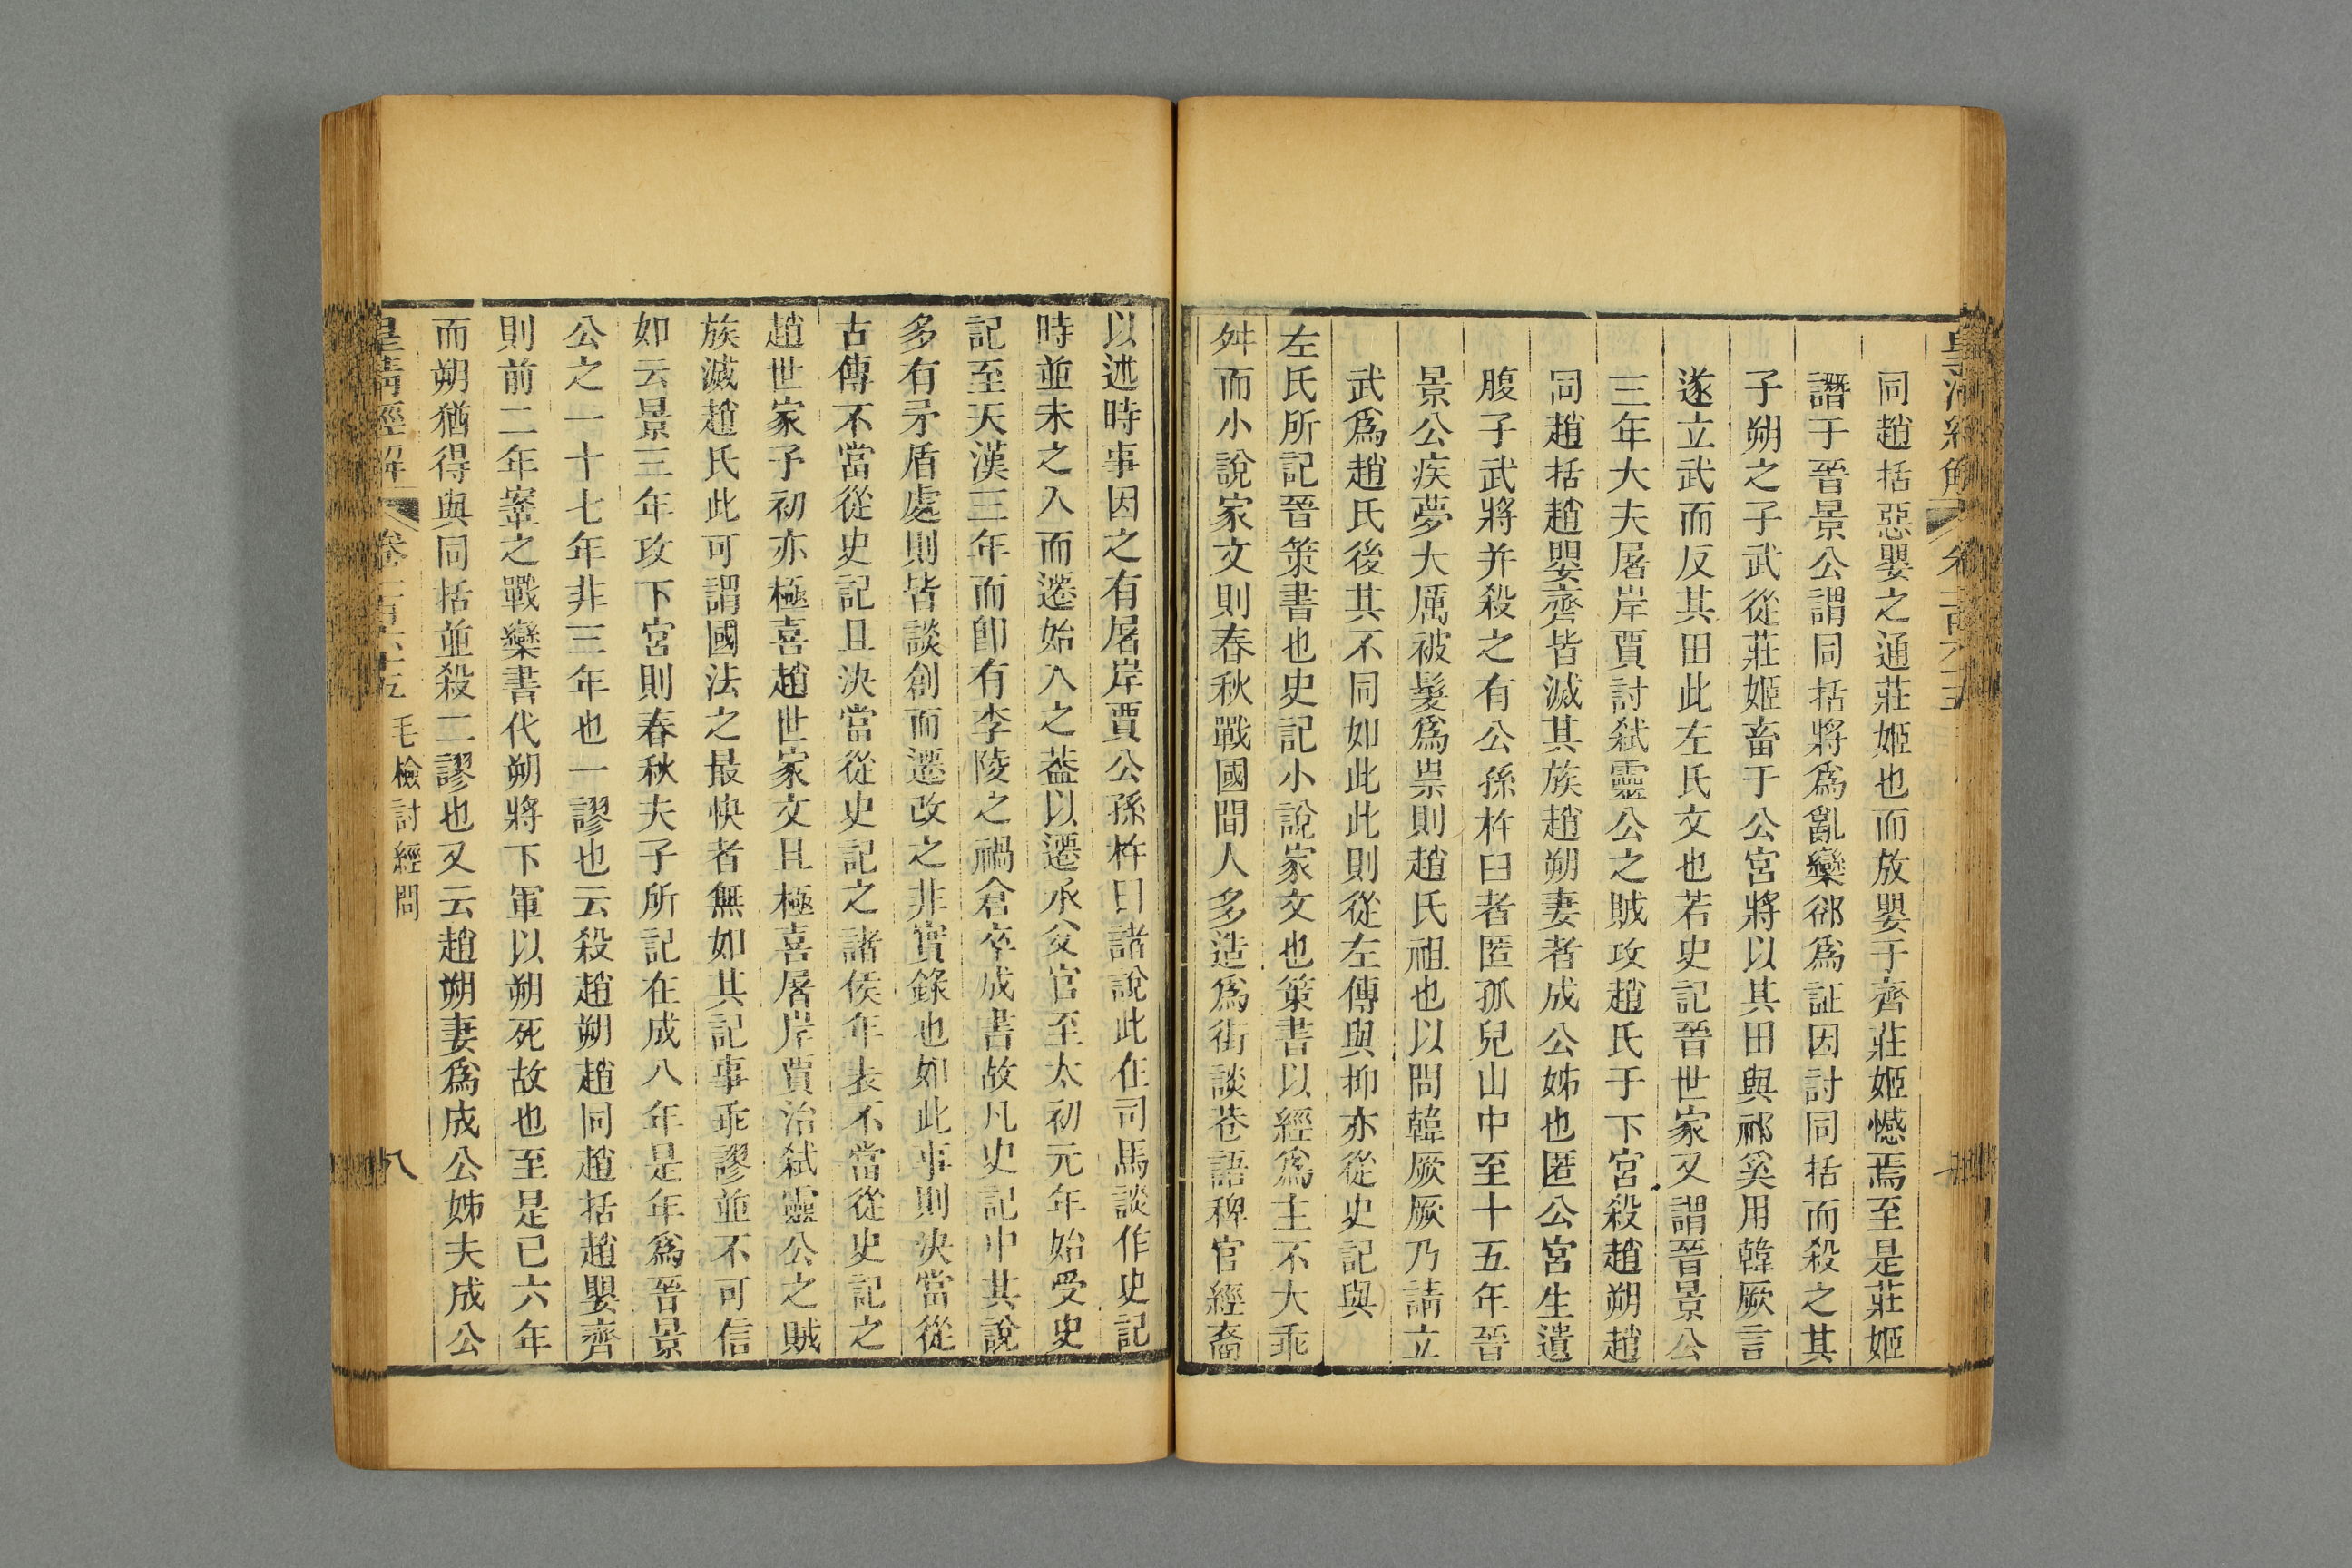 同趙括惡嬰之通莊姬也而放嬰于齊莊姬憾焉至是莊姬
譖于晉景公謂同括將爲亂欒郤爲証因討同括而殺之其
子朔之子武從莊姬畜于公宮將以其田與祁奚用韓厥言
遂立武而反其田此左氏文也若史記晉世家又謂晉景公
三年大夫屠岸賈討弑靈公之賊攻趙氏于下宮殺趙朔趙
同趙括趙嬰齊皆滅其族趙朔妻者成公姊也匿公宮生遺
腹子武將并殺之有公孫杵臼者匿孤兒山中至十五年晉
景公疾夢大厲被髮爲祟則趙氏祖也以問韓厥厥乃請立
武爲趙氏後其不同如此此則從左傳與抑亦從史記與
左氏所記晉策書也史記小說家文也策書以經爲主不大乖
舛而小說家文則春秋戰國間人多造爲街談巷語稗官經裔
以述時事因之有屠岸賈公孫杵臼諸說此在司馬談作史記
時並未之入而遷始入之葢以遷承父官至太初元年始受史
記至天漢三年而卽有李陵之禍倉卒成書故凡史記中其說
多有矛盾處則皆談創而遷改之非實錄也如此事則決當從
古傳不當從史記且決當從史記之諸侯年表不當從史記之
趙世家予初亦極喜趙世家文且極喜屠岸賈治弑靈公之賊
族滅趙氏此可謂國法之最快者無如其記事乖謬並不可信
如云景三年攻下宮則春秋夫子所記在成八年是年爲晉景
公之一十七年非三年也一謬也云殺趙朔趙同趙括趙嬰齊
則前二年鞌之戰欒書代朔將下軍以朔死故也至是已六年
而朔猶得與同括並殺二謬也又云趙朔妻爲成公姊夫成公
皇清經解 卷一百六十五 毛檢討經問 八